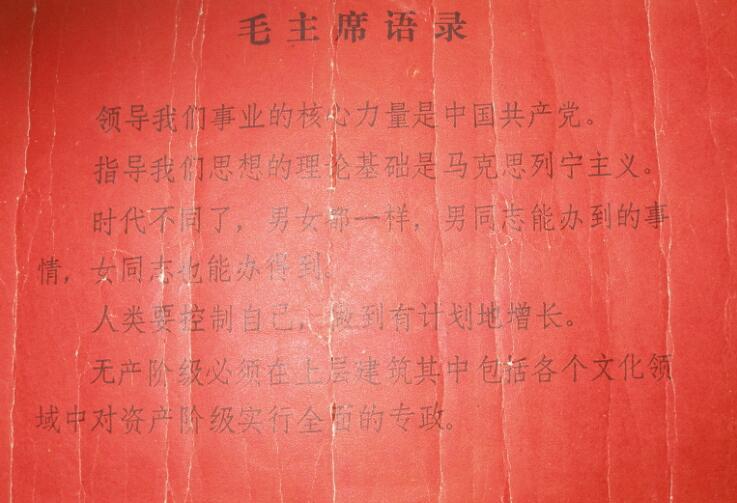 毛主席语录
领导我们事业的核心力量是中国共产党。
指导我们思想的理论基础是马克思列宁主义。
时代不同了，男女都一样，男同志能办到的事
情，女同志也能办得到。
人类要控制自己，做到有计划地增长。
无产阶级必须在上层建筑其中包括各个文化领
域中对资产阶级实行全面的专政。